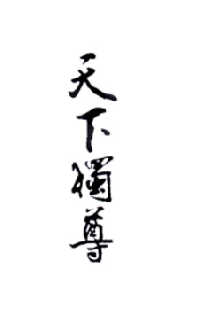 天下獨尊